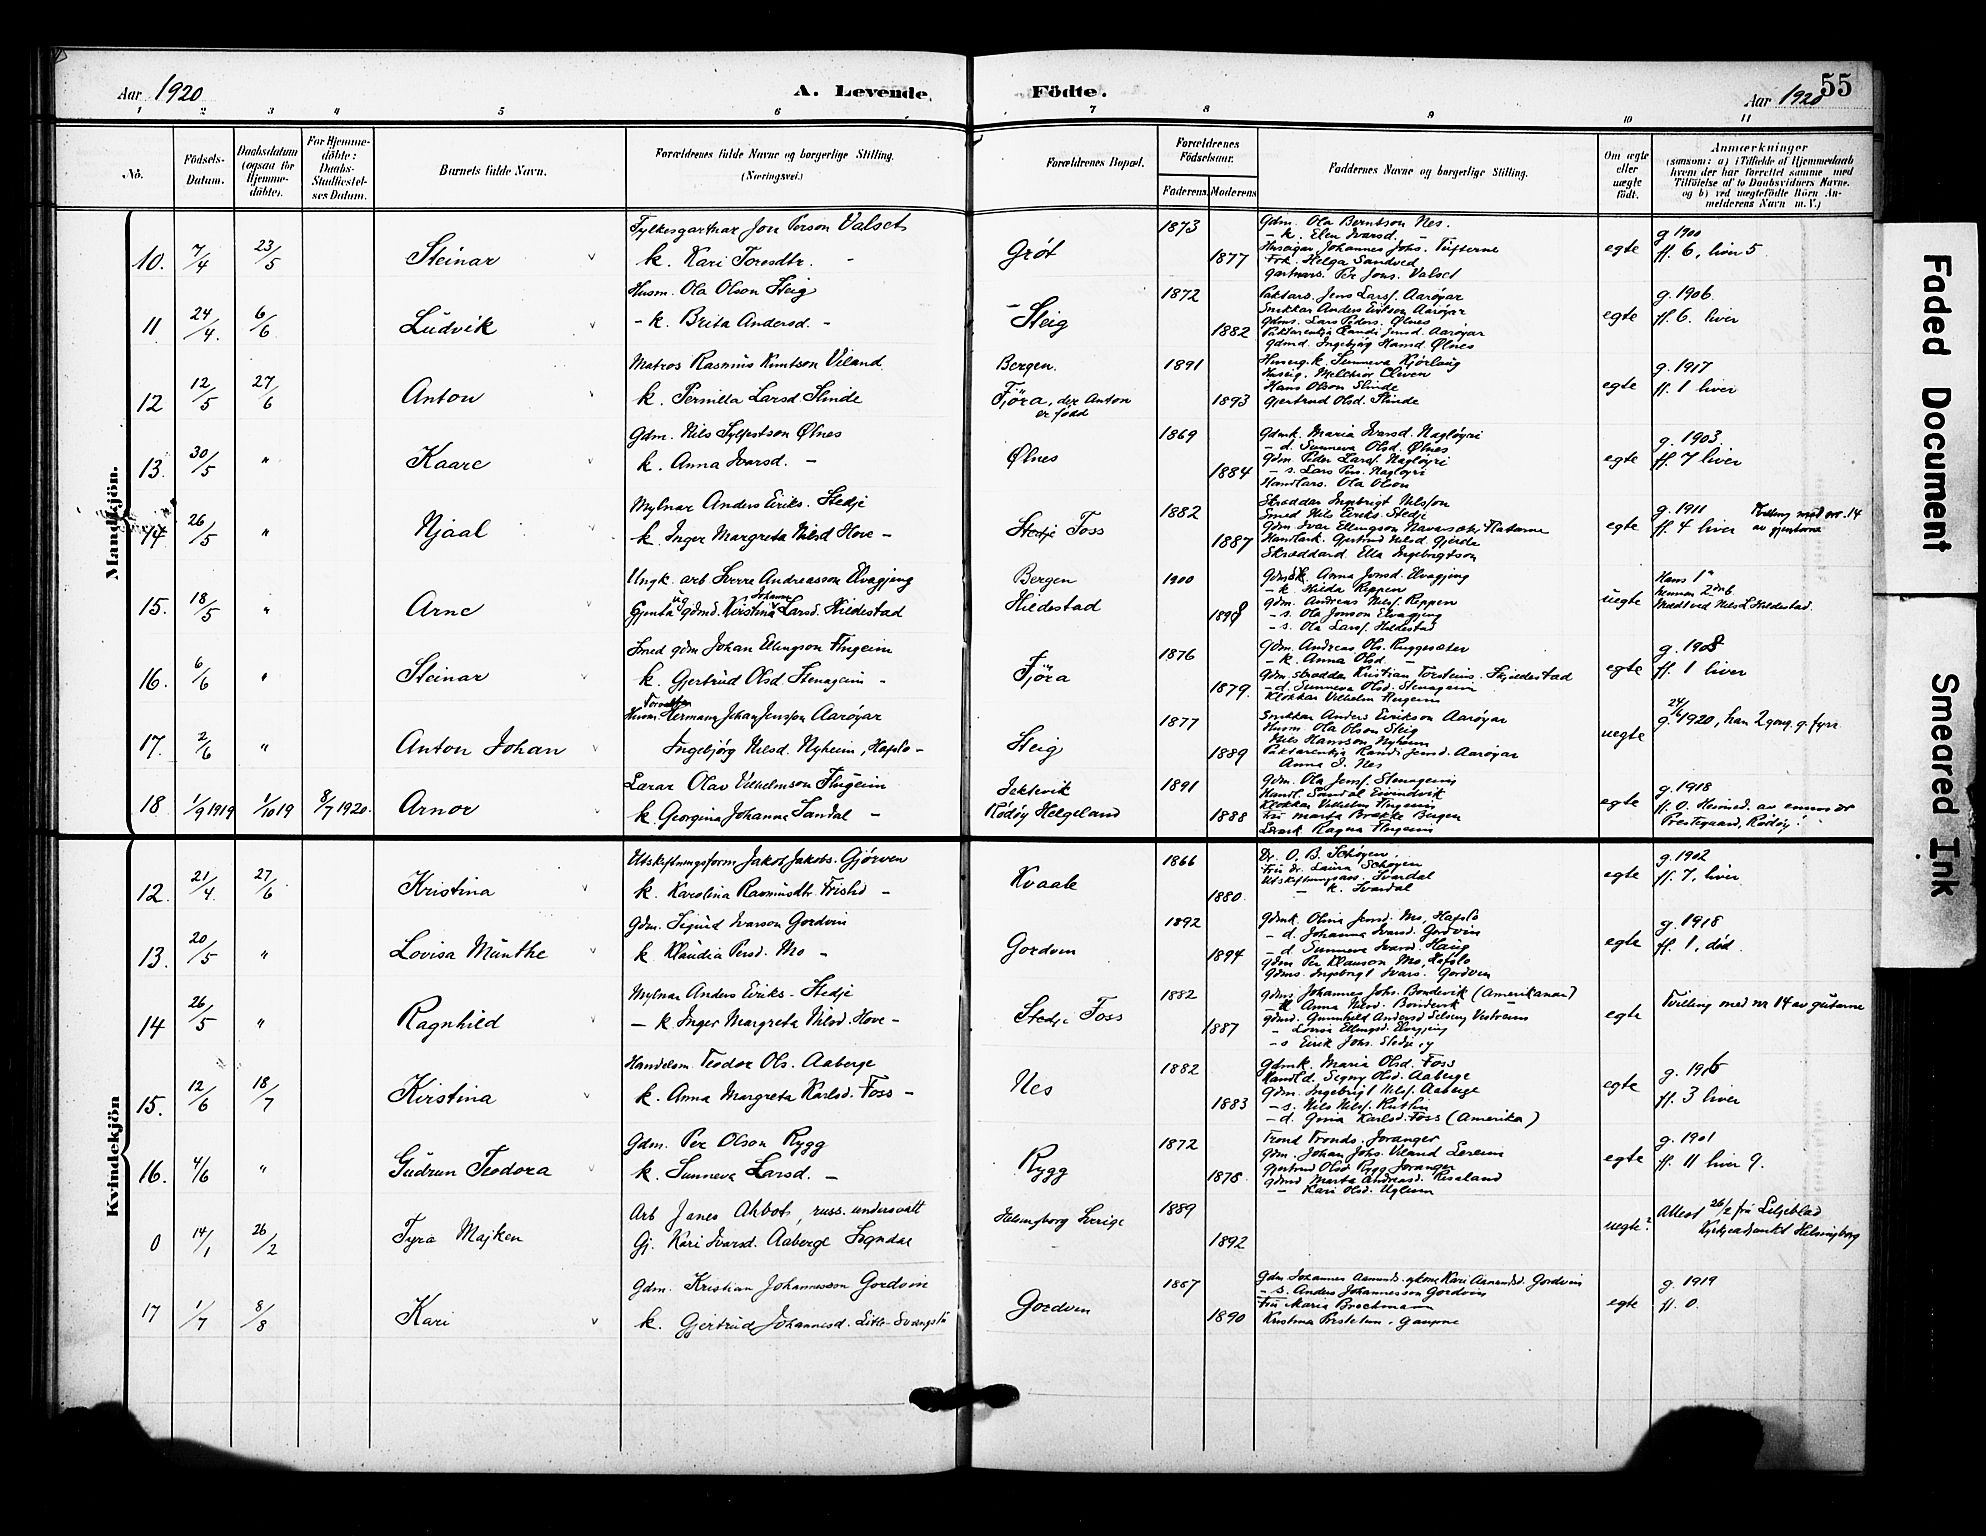 Aar 1920
A. Levende Födte.
Aar 1920
55
1 2 3 4 5 6 7 8 9 10 11
No.
Födsels-Datum.
Daabsdatum (ogsaa for Hjemme-döbte).
For Hjemme-döbte: Daabs-Stadfæstel-ses Datum.
Barnets fulde Navn.
Forældrenes fulde Navne og borgerlige Stilling. (Næringsvei.)
Forældrenes Bopæl.
Forældrenes Födselsaar.
Faderens. Moderens
Faddernes Navne og borgerlige Stilling.
Om ægte eller uægte födt.
Anmærkninger
(saasom: a) i Tilfælde af Hjemmedaab
hvem der har forrettet samme med
Tilföielse af to Daabsvidners Navne.
og b) ved uægtefödte Börn An-
melderens Navn m. V.)
Mandkjön.
10. 7/4 23/5 Steinar
Fylkesgartnar Jon Person Valset
k. Kari Toresdtr. -
Gröt 1873 1877
Gdm. Ola Berntson Nes.
- k. Elen Ivarsd. -
Huseigar Johannes Johs. Tufterne
Frk. Helga Sandved
Gartnars. Per Jons. Valset
egte
g 1900
ff. 6, liver 5
11 24/4. 6/6 Ludvik
Husm. Ola Olson Steig
- k. Brita Andersd. -
Steig 1872 1882
Paktars. Jens Larss. Aaröyar
Snikkar Anders Eirikson Aaröyar
Gdms. Lars Peders. Ølnes
Paktarenkja Randi Jensd. Aaröyar
Gdmd. Ingebjög Hansd. Ølnes
egte
g. 1906.
ff. 6. liver
12 12/5 27/6 Anton
Matros Rasmus Knutson Viland.
k. Pernilla Larsd Slinde
Bergen.
Fjöra, der Anton
er född
1891 1893
Huseig. k. Sunneva Kjörlaug
Huseig. Melchior Cleven
Hans Olson Slinde
Gjertrud Olsd. Slinde
egte
g. 1917
ff. 1 liver
13. 30/5 " Kaare
Gdm. Nils Sylfestson Ølnes
k. Anna Ivarsd. -
Ølnes 1869 1884
Gdmk. Maria Ivarsd. Naglöyri
- d. Sunneva Olsd. Ølnes
Gdm. Peder Larss. Naglöyri
- s. Lars Pers. Naglöyri
Handlars. Ola Olson
egte
g. 1903.
ff. 7 liver
14 26/5 " Njaal
Mylnar Anders Eiriks. Stedje
k. Inger Margreta Nilsd Hove -
Stedje Foss 1882 1887
Skræddar Ingebrigt Nilsson
Smed Nils Eiriks. Stedje
Gdm. Ivar Ellingson Navarsete, Flatarne
Handlark. Gjertrud Nilsd. Gjerde
Skræddard. Ella Ingebrigtson
egte
g. 1911
ff. 4 liver
Tvilling med nr. 14
av gjentorne
15. 18/5 " Arne
Ungk. arb Sverre Andreasson Elvagjeng
Gjenta ug gdmd. Kirstina Johanne Larsd. Hildestad
Bergen
Hildestad
1900 1898
Gdmk. Anna Jonsd. Elvagjeng
- k. Hilda Reppen
Gdm. Andreas Nilss. Reppen
- s. Ola Jonson Elvagjeng
- s. Ola Larss. Hildestad
uegte
Hans 1ste
hennar 2dre b
Mødt ved Nils L Hildestad.
16. 6/6 " Steinar
Smed gdm Johan Ellingson Flugeim
k. Gjertrud Olsd Stenageim -
Fjöra 1876 1879.
Gdm. Andreas Ols. Ruggesæter
- k. Anna Olsd. -
Gdm. skræddar Kristian Torsteins. Skjeldestad
- d. Sunneva Olsd. Stenageim
Klokkar Vilhelm Flugeim
egte
g. 1908
ff. 1 liver
17. 2/6 " Anton Johan
Husm. Hermann Johan Jensson Aaröyar
Ingebjörg Nilsd. Nyheim, Hafslo -
Steig 1877 1889
Snikkar Anders Eirikson Aaröyar
Husm. Ola Olson Steig
Nils Hansson Nyheim
Paktarenkja Randi Jensd. Aaröyar
Anna I. Nes
uegte
g. 24/4 1920, han 2 gong, g. fyrr.
18 1/9 1919 1/10 19 8/7 1920. Arnor
Lærar Olav Vilhelmson Flugeim
k. Georgina Johanne Sandal -
Jektevik
Rödöy Helgeland
1891 1888
Gdm. Ola Jenss. Stenageim
Handl. Sandal Eivindvik
Klokkar Vilhelm Flugeim
Fru Marta Brække Bergen
Lærark Ragna Flugeim
egte
g. 1918
ff. 0. Heimed. av
Prestegaard, Rödöy.
Kvindekjön
12. 21/4 27/6 Kristina
Utskiftningsform Jakob Jakobs. Gjörven
k. Karolina Rasmusdtr. Fristad -
Kvaale 1866 1880.
Dr. O. B. Schøyen.
Fru dr. Laura Schøyen
Utskiftningsass. Svardal
- k. Svardal
egte
g. 1902
ff. 7, liver
13. 20/5 " Lovisa Munthe
Gdm. Sigurd Ivarson Gordvin
k Klaudia Persd. Mo -
Gordven 1892 1894
Gdmk. Olina Jensd. Mo, Hafslo
- d. Johanna Ivarsd. Gordvin
- d. Sunneva Ivarsd. Haug
Gdm Per Klauson Mo, Hafslo
Gdms. Ingebrigt Ivars. Gordven
egte
g. 1918
ff. 1, död.
14 26/5 " Ragnhild
Mylnar Anders Eiriks. Stedje
- k Inger Margreta Nilsd. Hove -
Stedje Foss 1882 1887
Gdms Johannes Johs. Bondevik (Amerikanar)
- k Anna Nilsd. Bondevik
Gdmd. Gunnhild Andersd Selseng Vestreim
- Lovisa Ellingsd. Elvegjeng
- s Eirik Johs. Stedje, y
egte
Tvilling med nr 14 av gutarne
15. 12/6 18/7 Kirstina
Handelsm. Teodor Ols. Aaberge
k. Anna Margreta Karlsd. Foss -
Nes 1882 1883
Gdmk. Maria Olsd. Foss
Handl d. Signy Olsd. Aaberge
Gdm. Ingebrigt Nilss. Aaberge
- s. Nils Nilss. Rutlin
- d. Gina Karlsd. Foss (Amerika)
egte
g. 1906
ff. 3 liver
16. 4/6 " Gudrun Teodora
Gdm. Per Olson Rygg
k. Sunneva Larsd. -
Rygg 1872 1878
Trond Tronds. Joranger
Gdm. Johan Johs. Viland Lereim
Gjertrud Olsd Rygg Joranger
Gdmd Marta Andreasd. Risaland
- Kari Olsd. Uglum
egte
g. 1901
ff. 11 liver 9.
0 14/1 26/2 Tyra Majken
Arb Janes Ahbots, russ. undersaatt
Gj. Kari Ivarsd. Aaberge Sogndal
Helsingborg Sverige 1889 1892
uegte?
Attest 26/2 frå Liljeblad
Kyrkjeadjunkt Helsingborg
17 1/7 8/8 Kari
Gdm. Kristian Johannesson Gordvin
k. Gjertrud Johannesd. Litle-Svangstu
Gordven 1887 1890
Gdm Johannes Aamunds. og kone Kari Aamundsd. Gordvin
- s. Anders Johannesson Gordvin
Fru Maria Brochmann
Kristina Prestetun, Gaupne
egte
g. 1919
ff. 0.
Faded Document
Smeared Ink